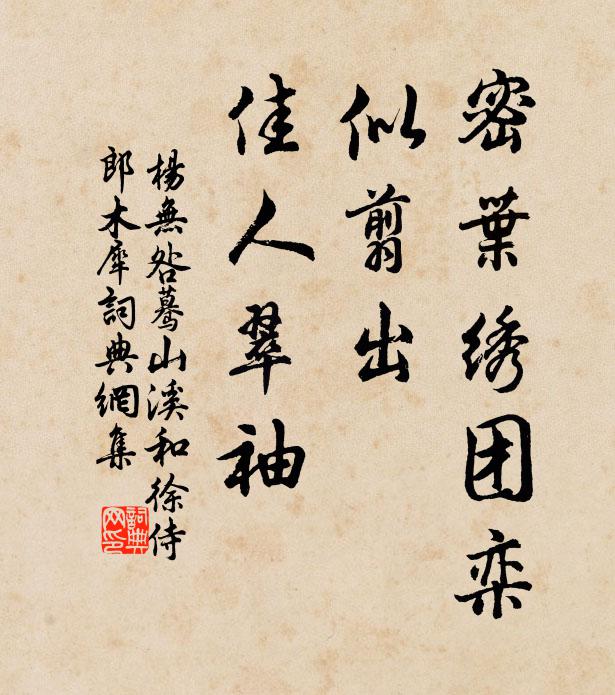 密葉绣团栾
似剪出
佳人翠袖
楊無咎驀山溪和徐侍
郎木犀詞典網集
詞典
网印